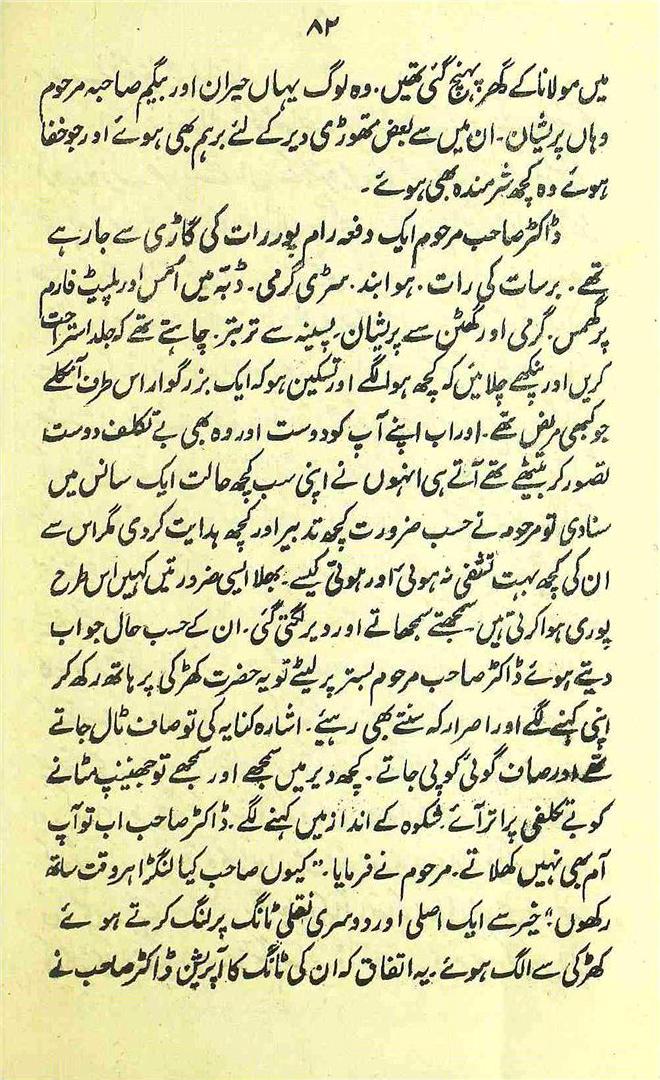 ۸۲
میں مولانا کے گھر پہنچ گئی تھیں۔ وہ لوگ یہاں حیران اور بیگم صاحبہ مرحوم
وہاں پریشان۔ ان میں سے بعض تھوڑی دیر کے لئے برہم بھی ہوئے اور جو خفا
ہوئے وہ کچھ شرمندہ بھی ہوئے۔
ڈاکٹر صاحب مرحوم ایک دفعہ رام پور رات کی گاڑی سے جا رہے
تھے۔ برسات کی رات۔ ہوا بند۔ سڑی گرمی۔ ڈبّہ میں اُمس اور پلیٹ فارم
پر گھمس۔ گرمی اور گھٹن سے پریشان۔ پسینہ سے تر بتر۔ چاہتے تھے کہ جلد استراحت
کریں اور پنکھے چلائیں کہ کچھ ہوا لگے اور تسکین ہو کہ ایک بزرگوار اس طرف آنکلے
جو کبھی مریض تھے۔ اور اب اپنے آپ کو دوست اور وہ بھی بے تکلف دوست
تصور کر بیٹھے تھے آتے ہی انہوں نے اپنی سب کچھ حالت ایک سانس میں
سنا دی تو مرحوم نے حسب ضرورت کچھ تدبیر اور کچھ ہدایت کر دی مگر اس سے
ان کی کچھ بہت تشفی نہ ہوئی اور ہوتی کیسے۔ بھلا ایسی ضرورتیں کہیں اس طرح
پوری ہوا کرتی ہیں۔ سمجھتے سمجھاتے اور دیر لگتی گئی۔ ان کے حسب حال جواب
دیتے ہوئے ڈاکٹر صاحب مرحوم بستر پر لیٹے تو یہ حضرت کھڑکی پر ہاتھ رکھ کر
اپنی کہنے لگے اور اصرار کہ سنتے بھی رہیئے۔ اشارہ کنایہ کی تو صاف ٹال جاتے
تھے اور صاف گوئی کو پی جاتے۔ کچھ دیر میں سمجھے اور سمجھے تو جھینپ مٹانے
کو بے تکلفی پر اتر آئے۔ شکوہ کے انداز میں کہنے لگے۔ ڈاکٹر صاحب اب تو آپ
آم بھی نہیں کھلاتے۔ مرحوم نے فرمایا۔ "کیوں صاحب کیا لنگڑا ہر وقت ساتھ
رکھوں؟" خیر سے ایک اصلی اور دوسری نقلی ٹانگ پر لنگ کرتے ہوئے
کھڑکی سے الگ ہوئے۔ یہ اتفاق کہ ان کی ٹانگ کا آپریشن ڈاکٹر صاحب نے